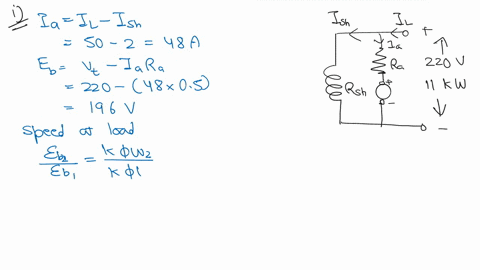 i) Ia = IL - Ish
= 50 - 2 = 48 A
Eb = Vt - Ia Ra
= 220 - (48 x 0.5)
= 196 V
Speed at load
Eb2 / Eb1 = k ϕ ω2 / k ϕ l
Ish IL +
Ia
Ra
Rsh
+
-
220 V
11 kW
-